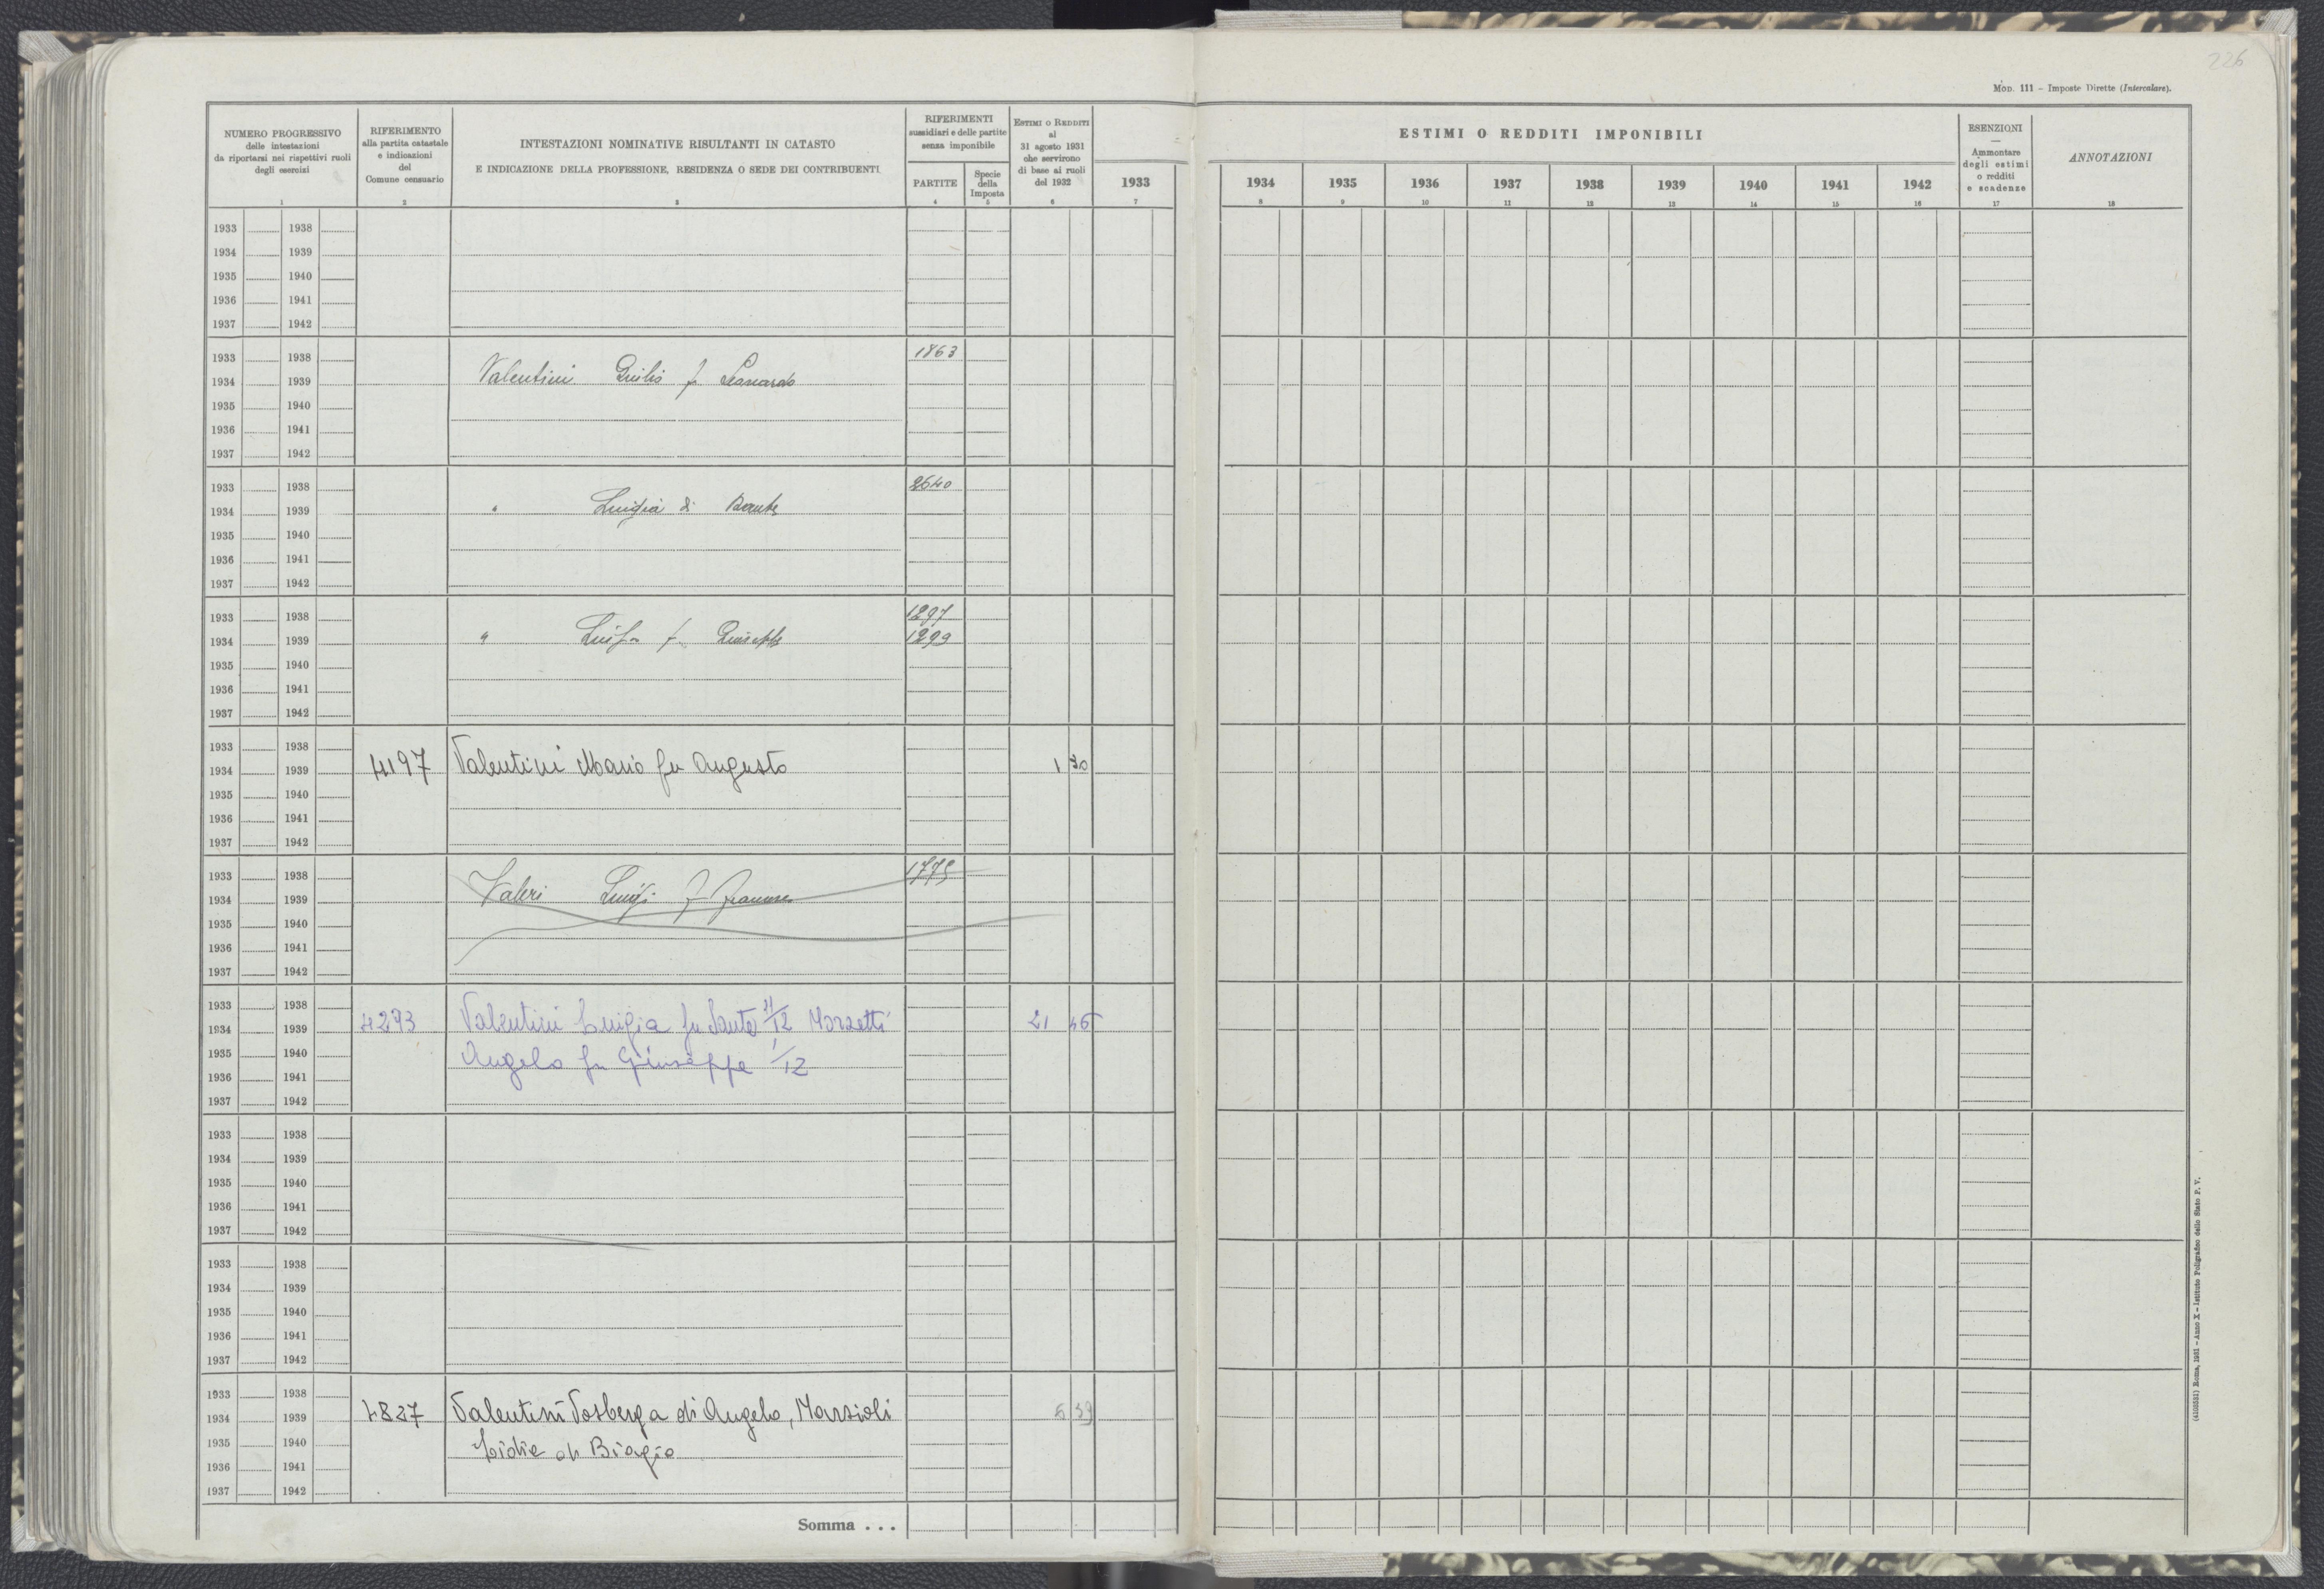 226
MOD. 111 - Imposte Dirette (Intercalare).
NUMERO PROGRESSIVO
delle intestazioni
da riportarsi nei rispettivi ruoli
degli esercizi
1
RIFERIMENTO
alla partita catastale
e indicazioni
del
Comune censuario
2
INTESTAZIONI NOMINATIVE RISULTANTI IN CATASTO
E INDICAZIONE DELLA PROFESSIONE, RESIDENZA O SEDE DEI CONTRIBUENTI
3
RIFERIMENTI
sussidiari e delle partite
senza imponibile
PARTITE
4
Specie
della
Imposta
5
ESTIMI O REDDITI
al
31 agosto 1931
che servirono
di base ai ruoli
del 1932
6
1933
7
ESTIMI O REDDITI IMPONIBILI
1934 1935 1936 1937 1938 1939 1940 1941 1942
8 9 10 11 12 13 14 15 16
ESENZIONI
—
Ammontare
degli estimi
o redditi
e scadenze
17
ANNOTAZIONI
18
1933 1938
1934 1939
1935 1940
1936 1941
1937 1942
1933 1938 1863
1934 1939 Valentini Giulio f. Leonardo
1935 1940
1936 1941
1937 1942
1933 1938 2640
1934 1939 " Luigia di
1935 1940
1936 1941
1937 1942
1933 1938 1297
1934 1939 " f. Giuseppe 1299
1935 1940
1936 1941
1937 1942
1933 1938
1934 1939 4197 Valentini Mario fu Augusto 1 30
1935 1940
1936 1941
1937 1942
1933 1938 1775
1934 1939 Valeri Luigi f.
1935 1940
1936 1941
1937 1942
1933 1938
1934 1939 4273 Valentini Luigia fu Sante 11/12 Morzetti 21 46
1935 1940 Angelo fu Giuseppe 1/12
1936 1941
1937 1942
1933 1938
1934 1939
1935 1940
1936 1941
1937 1942
1933 1938
1934 1939
1935 1940
1936 1941
1937 1942
1933 1938
1934 1939 4827 Valentini Vosberga di Angelo, Marzioli 6 39
1935 1940 Lidia di Biagio
1936 1941
1937 1942
Somma . . .
(4103531) Roma, 1931 - Anno X - Istituto Poligrafico dello Stato P. V.